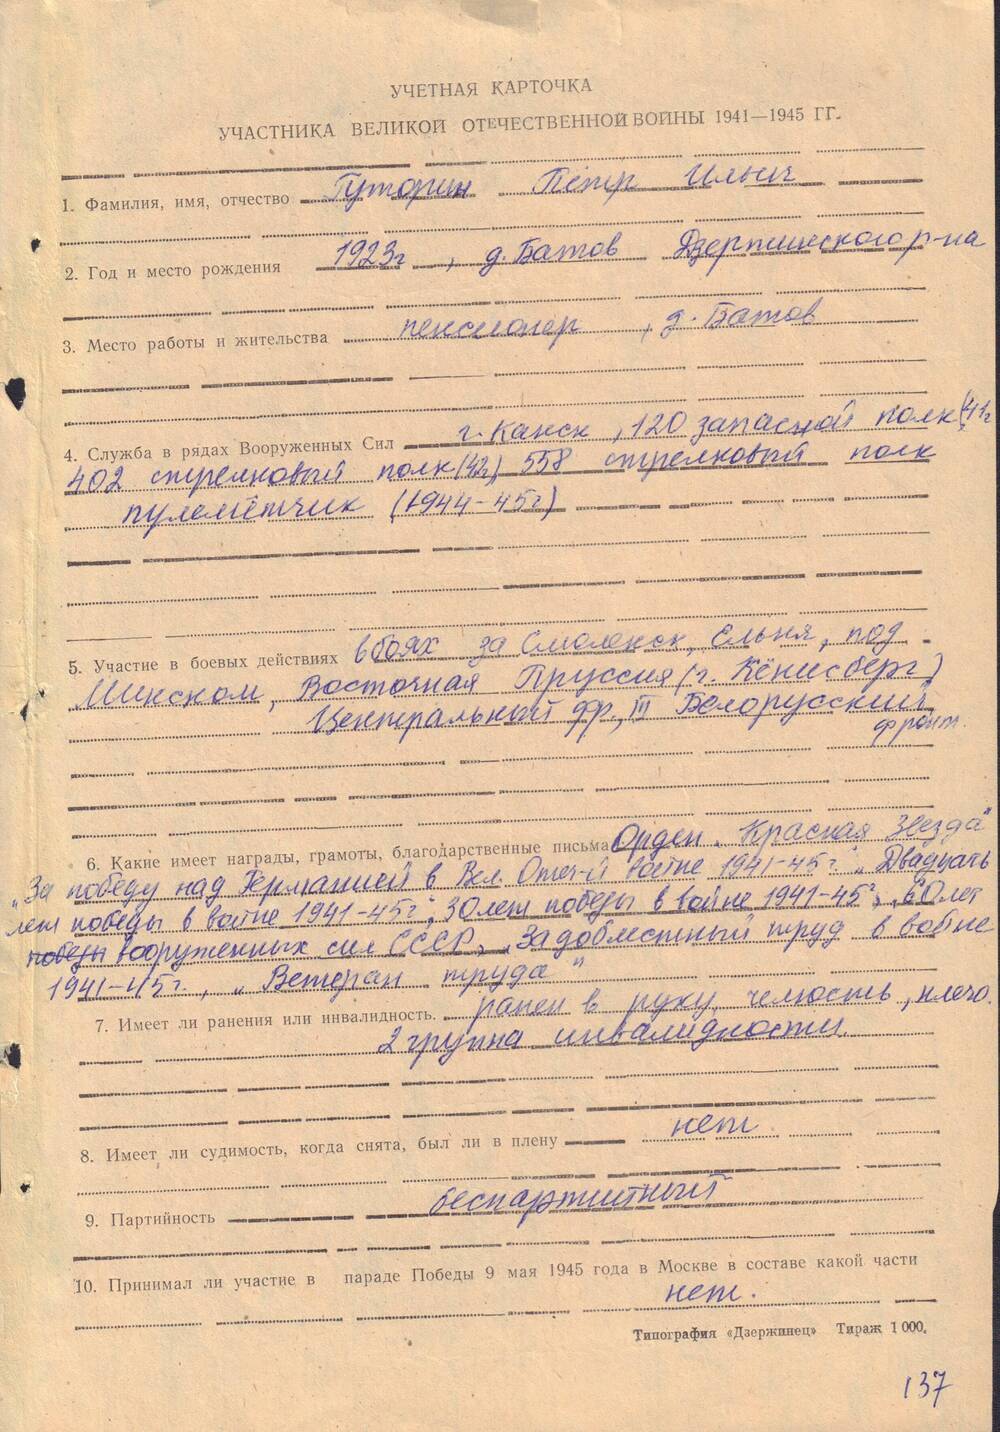 УЧЕТНАЯ КАРТОЧКА
УЧАСТНИКА ВЕЛИКОЙ ОТЕЧЕСТВЕННОЙ ВОЙНЫ 1941—1945 ГГ.
1. Фамилия, имя, отчество Гуторин Пётр Ильич
2. Год и место рождения 1923г, д. Батов Дзержинского р-на
3. Место работы и жительства пенсионер, д. Батов
4. Служба в рядах Вооруженных Сил г. Канск, 120 запасной полк (41г
402 стрелковый полк (42г), 558 стрелковый полк
пулемётчик (1944-45г)
5. Участие в боевых действиях в боях за Смоленск, Ельня, под
Минском, Восточная Пруссия (г. Кёнисберг)
Центральный фр., III Белорусский
фронт.
6. Какие имеет награды, грамоты, благодарственные письма Орден „Красная Звезда"
„За победу над Германией в Вел. Отеч-й войне 1941-45г." „Двадцать
лет победы в войне 1941-45г", 30 лет победы в войне 1941-45г", „60 лет
победы вооруженных сил СССР", „За доблестный труд в войне
1941-45г., „Ветеран труда"
7. Имеет ли ранения или инвалидность. ранен в руку, челюсть, плечо.
2 группа инвалидности.
8. Имеет ли судимость, когда снята, был ли в плену нет.
9. Партийность беспартийный
10. Принимал ли участие в параде Победы 9 мая 1945 года в Москве в составе какой части
нет.
Типография «Дзержинец» Тираж 1 000.
137